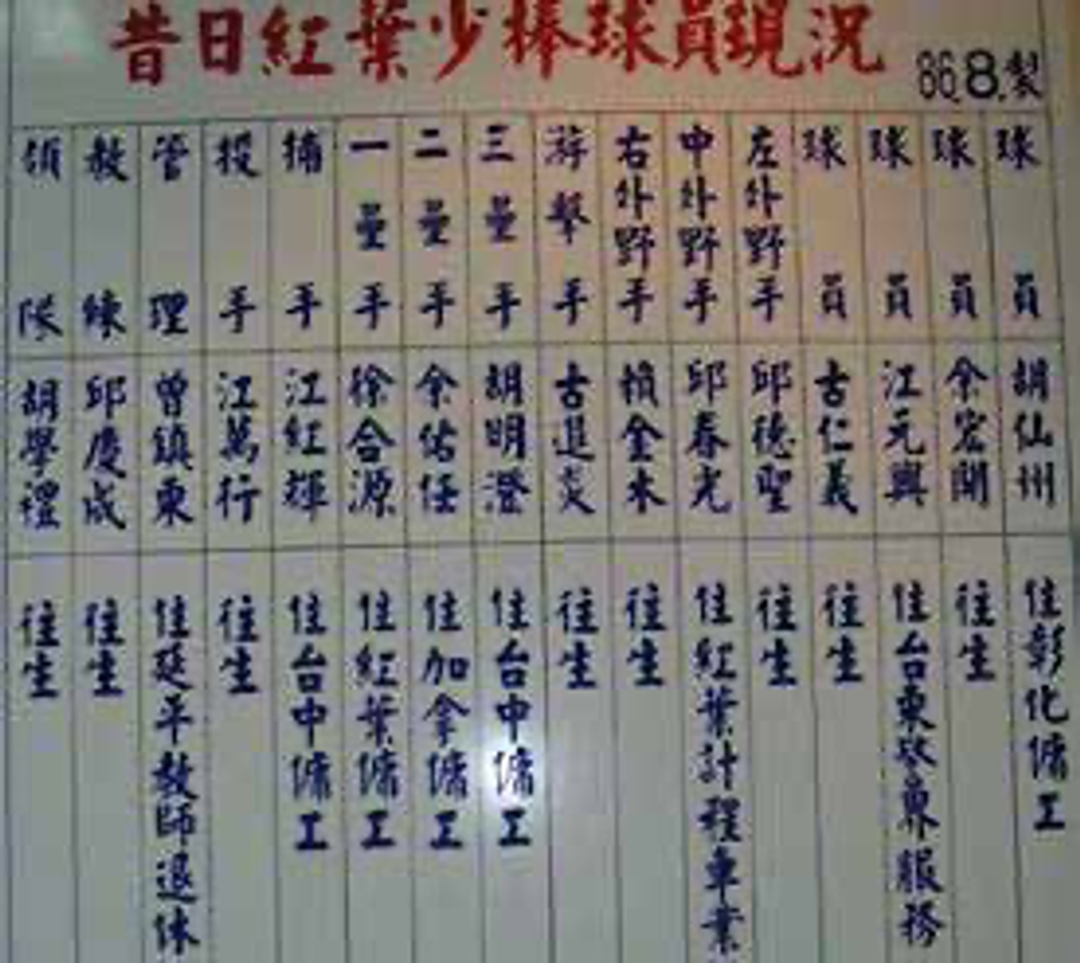 昔日紅葉少棒球員現況
86.8.製
領隊 胡學禮 往生
教練 邱慶成 往生
管理 曾鎮東 住延平教師退休
投手 江萬行 往生
捕手 江紅輝 住台中傭工
一壘手 徐合源 住紅葉傭工
二壘手 余佑任 住加拿傭工
三壘手 胡明澄 住台中傭工
游擊手 古進炎 往生
右外野手 賴金木 往生
中外野手 邱春光 住紅葉計程車業
左外野手 邱德聖 往生
球員 古仁義 往生
球員 江元興 住台東警界服務
球員 余宏開 往生
球員 胡仙州 住彰化傭工